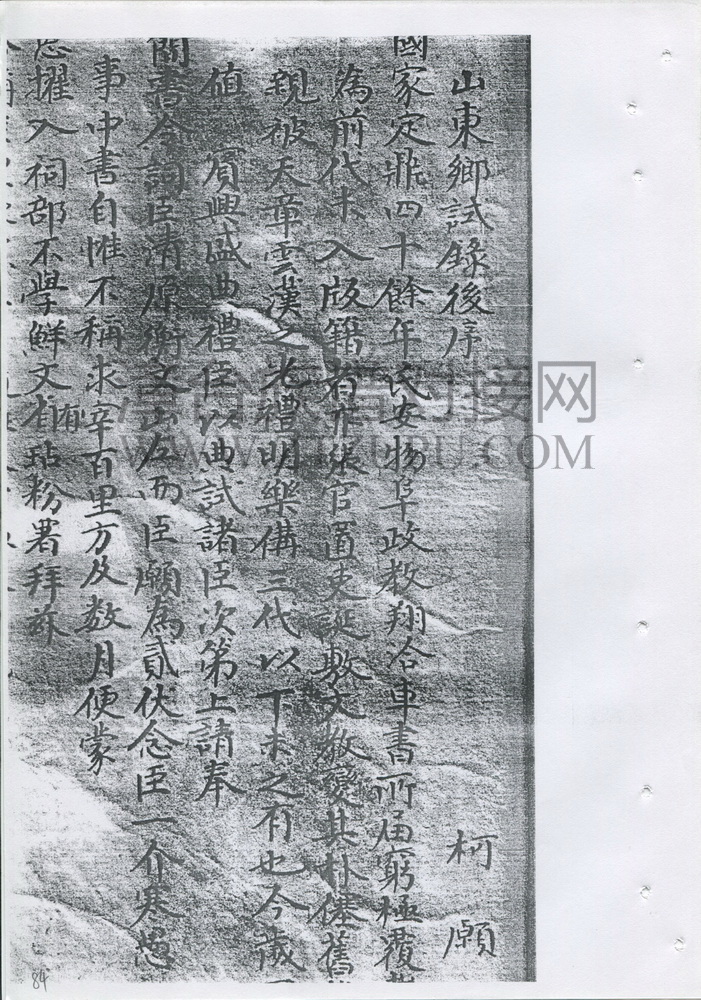 山東鄉試錄後序 柯願
國家定鼎四十餘年民安物阜政教翔洽車書所届窮極覆
為前代未入版籍者亦張官置吏誕敷文教變其朴僿舊
親被天章雲漢之光禮明樂備三代以下未之有也今歲
值 賓興盛典禮臣以典試諸臣次第上請奉
簡書今詞臣清原衡文山左而臣願為貳伏念臣一介寒愚
事中書自惟不稱求宰百里方及数月便蒙
恩擢入祠部不學鮮文有玷粉署拜茲
WWW.JIAPU.COM
84